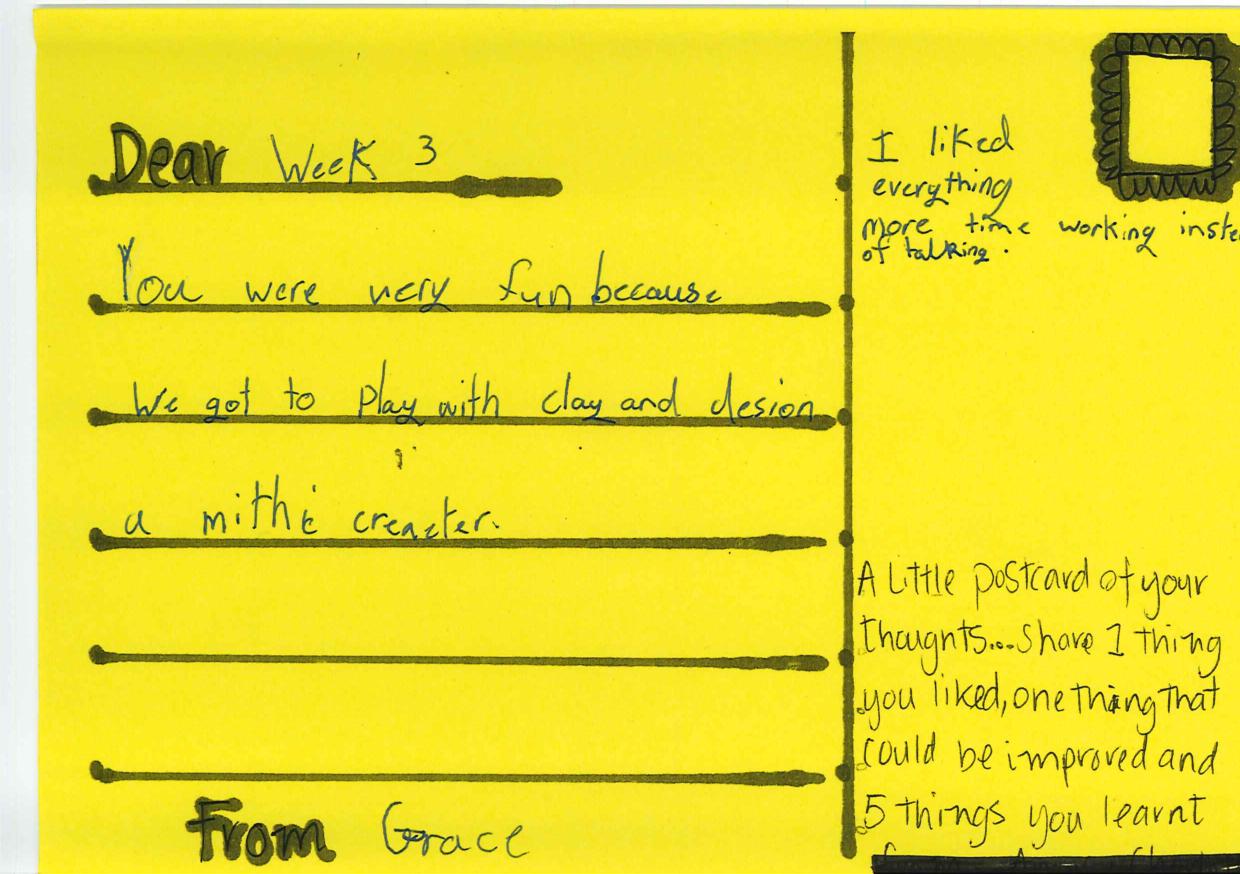 Dear Week 3
You were very fun because
We got to play with clay and desion
a mithic creacter.
From Grace
I liked
everything
more time working inste
of talking.
A Little postcard of your
thougnts...share 1 thing
you liked, one thing that
could be improved and
5 things you learnt